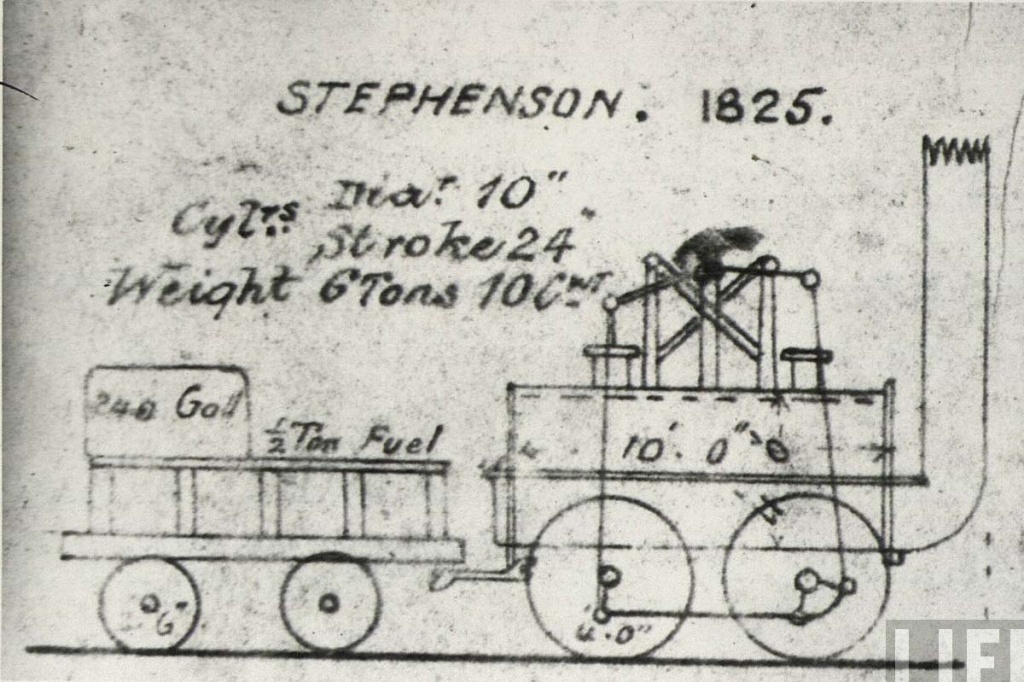 STEPHENSON. 1825.
Cylrs. Diar. 10"
Stroke 24"
Weight 6 Tons 10 Cwt
240 Gall
½ Ton Fuel
10'. 0"
4'.0"
LIFE